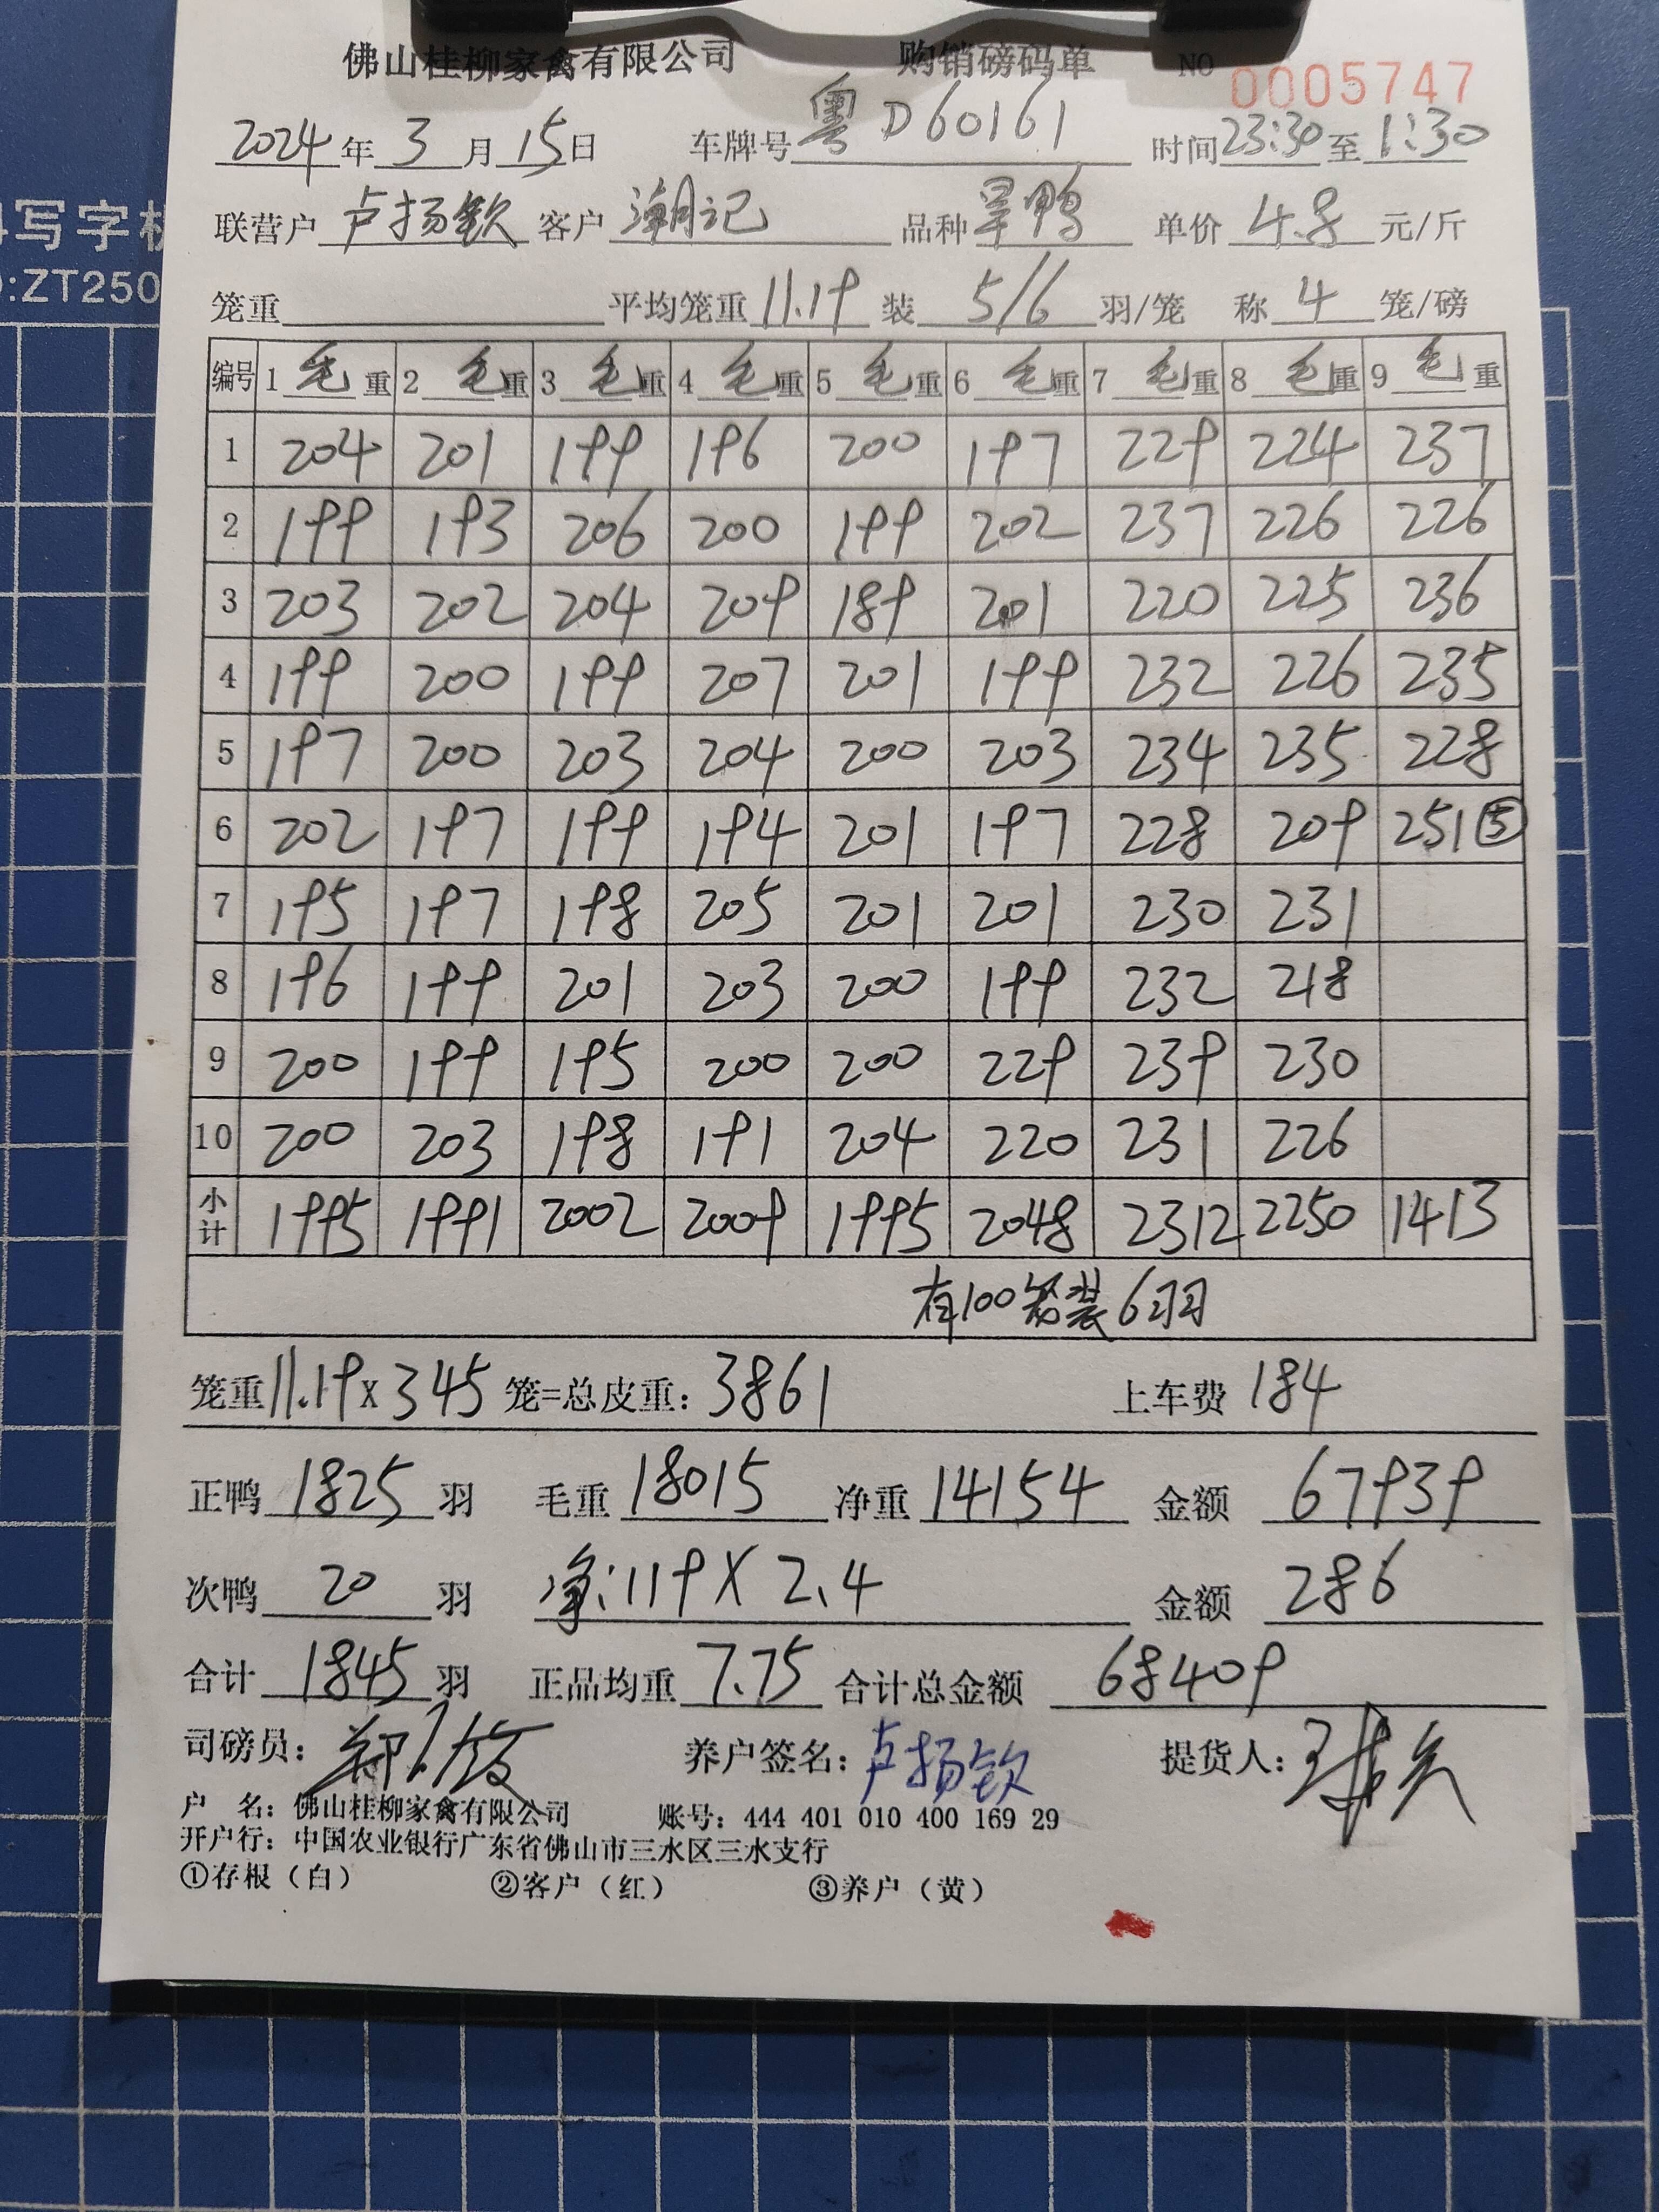 佛山桂柳家禽有限公司 购销磅码单 NO 0005747
2024年3月15日 车牌号粤D60161 时间23:30至1:30
写字板
:ZT250
联营户 卢扬钦 客户 潮记 品种 旱鸭 单价 4.8 元/斤
笼重 平均笼重 11.19 装 5/6 羽/笼 称 4 笼/磅
编号 1 毛重 2 毛重 3 毛重 4 毛重 5 毛重 6 毛重 7 毛重 8 毛重 9 毛重
1 204 201 199 196 200 197 229 224 237
2 199 193 206 200 199 202 237 226 226
3 203 202 204 209 189 201 220 225 236
4 199 200 199 207 201 199 232 226 235
5 197 200 203 204 200 203 234 235 228
6 202 197 199 194 201 197 228 209 251⑤
7 195 197 198 205 201 201 230 231
8 196 199 201 203 200 199 232 218
9 200 199 195 200 200 229 239 230
10 200 203 198 191 204 220 231 226
小计 1995 1991 2002 2009 1995 2048 2312 2250 1413
有100笼装6羽
笼重11.19x345笼=总皮重:3861 上车费 184
正鸭 1825 羽 毛重 18015 净重 14154 金额 67939
次鸭 20 羽 净:119X2.4 金额 286
合计 1845 羽 正品均重 7.75 合计总金额 68409
司磅员: 养户签名:卢扬钦 提货人:
户 名:佛山桂柳家禽有限公司 账号:444 401 010 400 169 29
开户行:中国农业银行广东省佛山市三水区三水支行
①存根(白) ②客户(红) ③养户(黄)